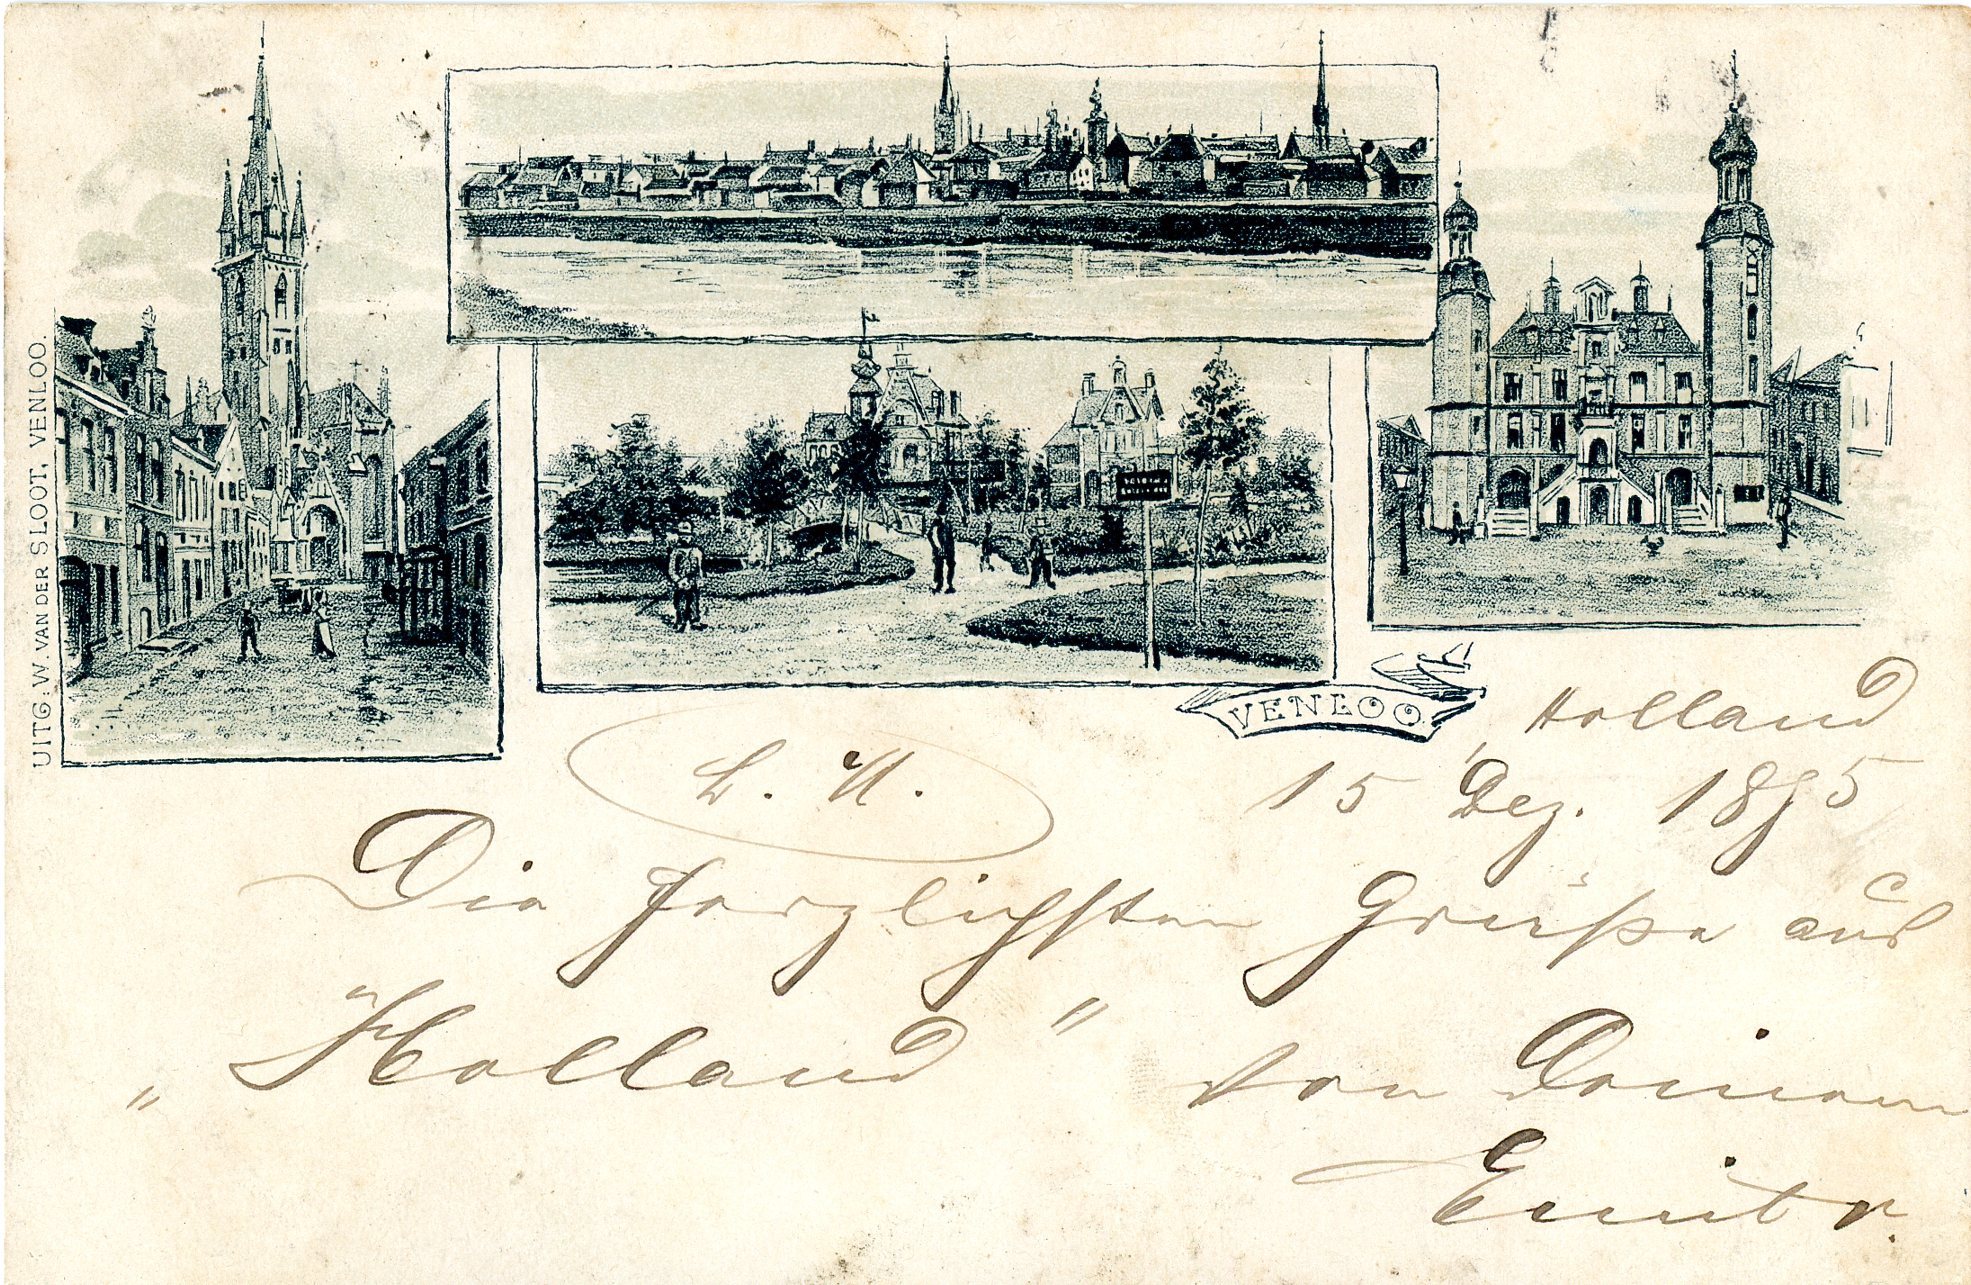 UITG: W. VAN DER SLOOT, VENLOO.
VENLOO
Holland
15 Dez. 1895
L. A.
Die herzlichsten Grüße aus
„Holland" von Deinem